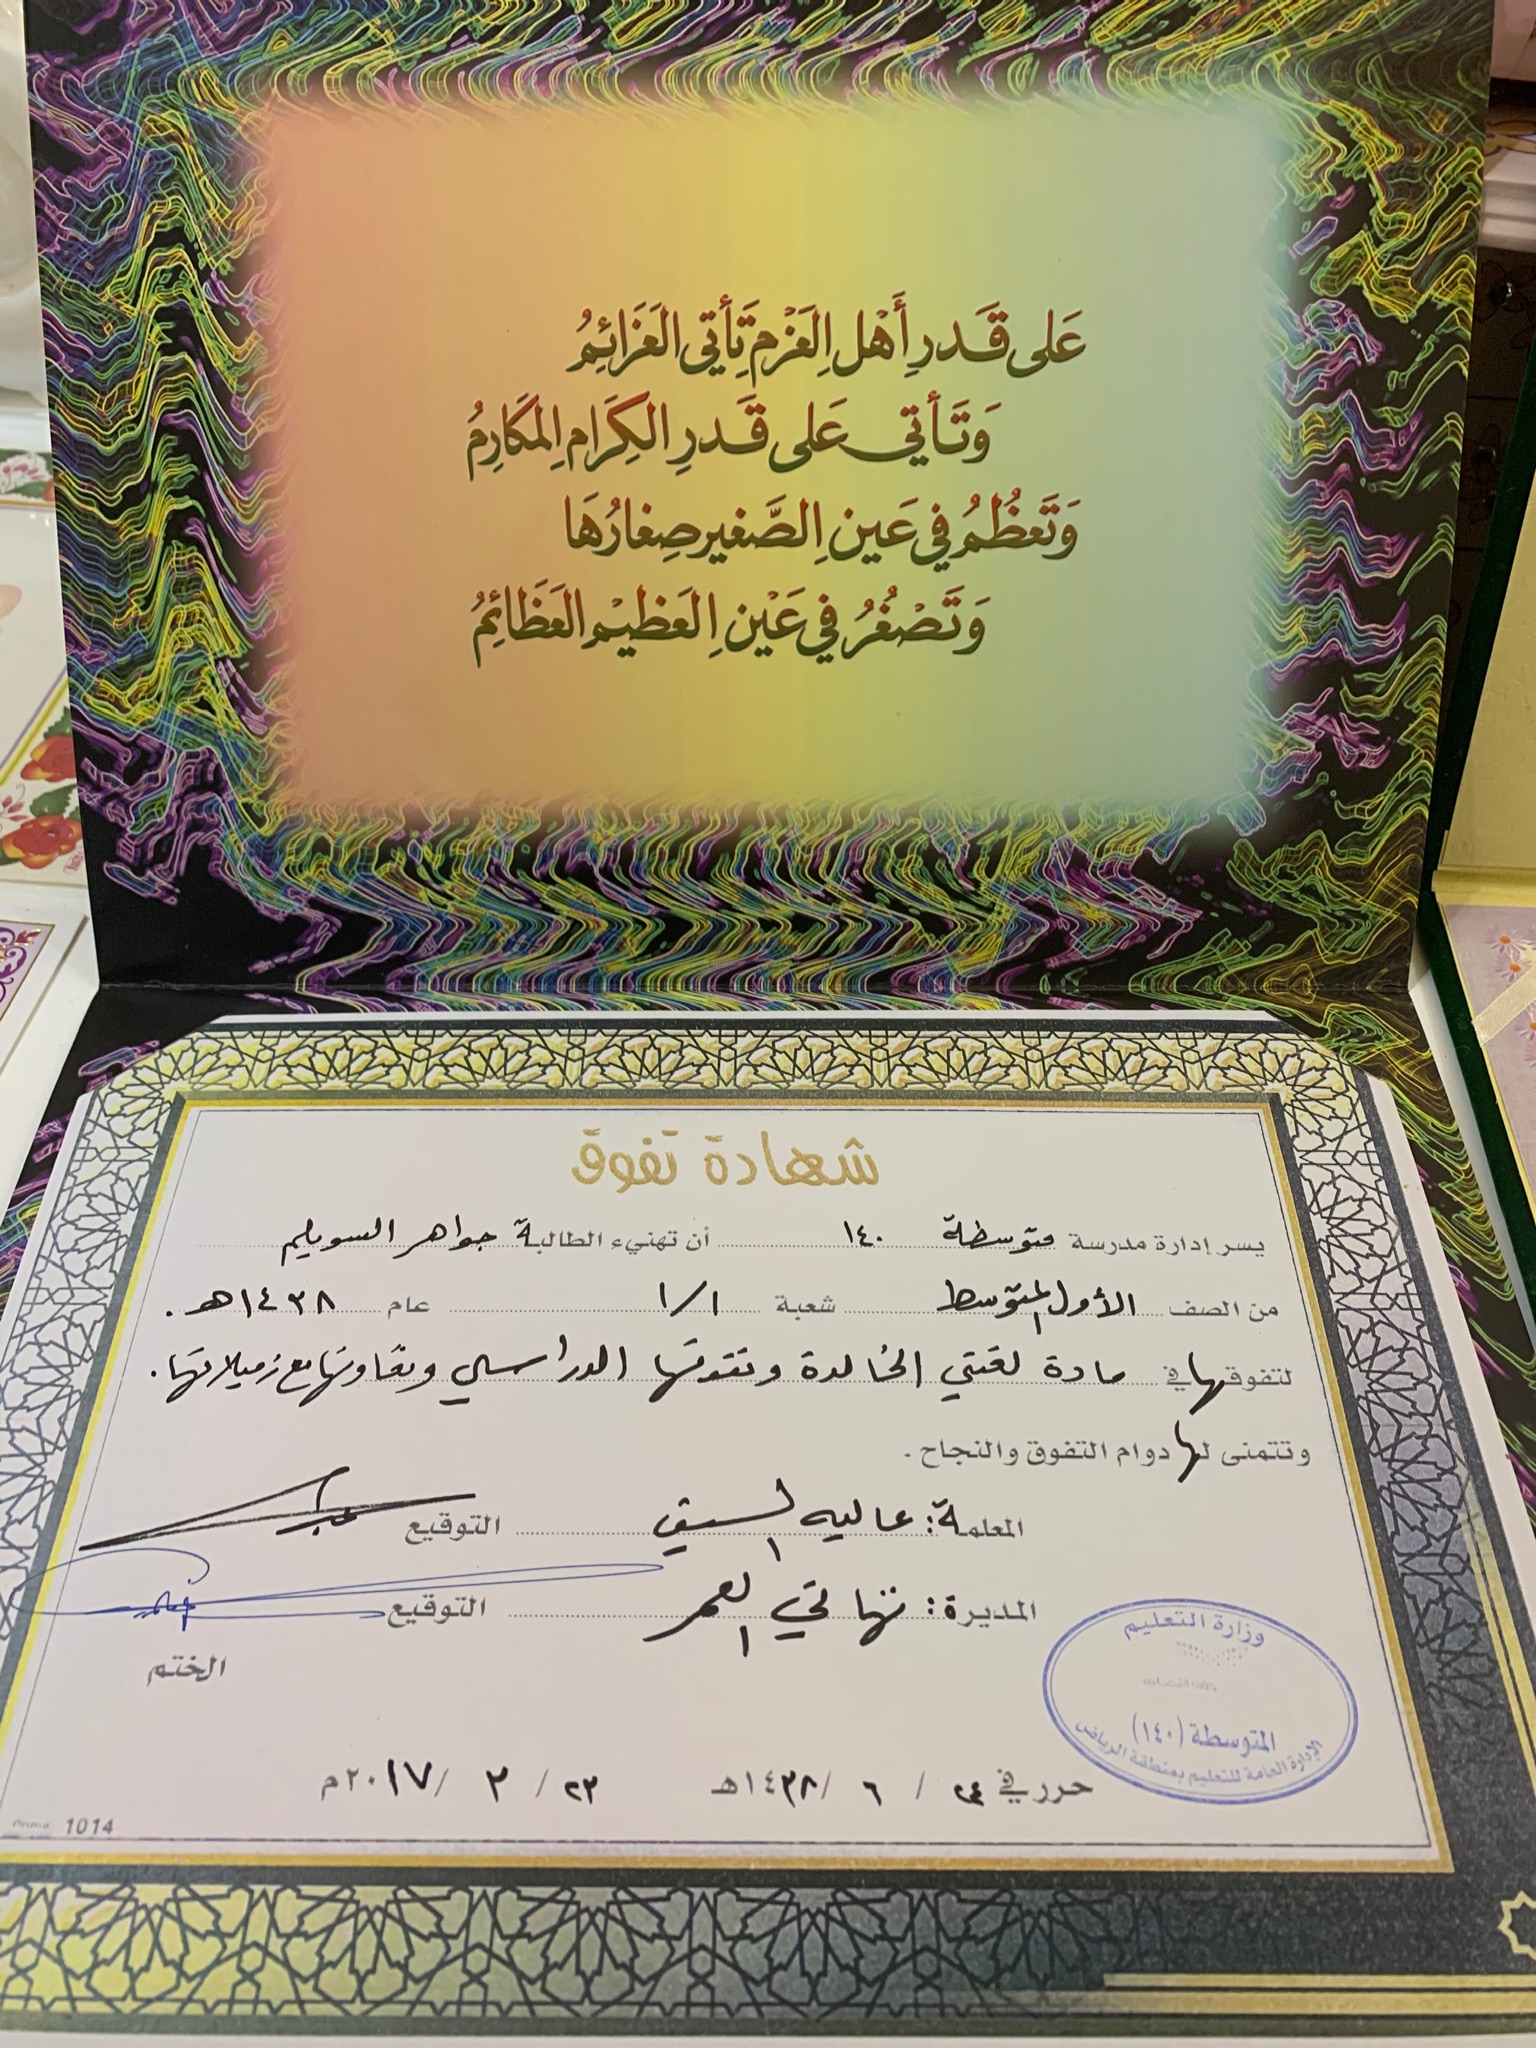 عَلى قَدرِ أَهْلِ العَزْمِ تَأتي العَزَائِمُ
وَتَأتي عَلى قَدرِ الكِرَامِ المَكَارِمُ
وَتَعظُمُ في عَينِ الصَّغيرِ صِغارُهَا
وَتَصْغُرُ في عَيْنِ العَظيْمِ العَظَائِمُ
شهادة تفوق
يسر إدارة مدرسة متوسطة ١٤٠ أن تهنيء الطالبة جواهر السويلم
من الصف الأول المتوسط شعبة ١/١ عام ١٤٣٨هـ.
لتفوقها في مادة لغتي الخالدة وتقدمها الدراسي وتعاونها مع زميلاتها.
وتتمنى لها دوام التفوق والنجاح .
المعلمة: عاليه التوقيع
المديرة: تهاني العمر التوقيع
الختم
وزارة التعليم
المتوسطة (١٤٠)
الإدارة العامة للتعليم بمنطقة الرياض
حرر في ٢٤ / ٦ / ١٤٣٨هـ ٢٣ / ٣ / ٢٠١٧م
1014